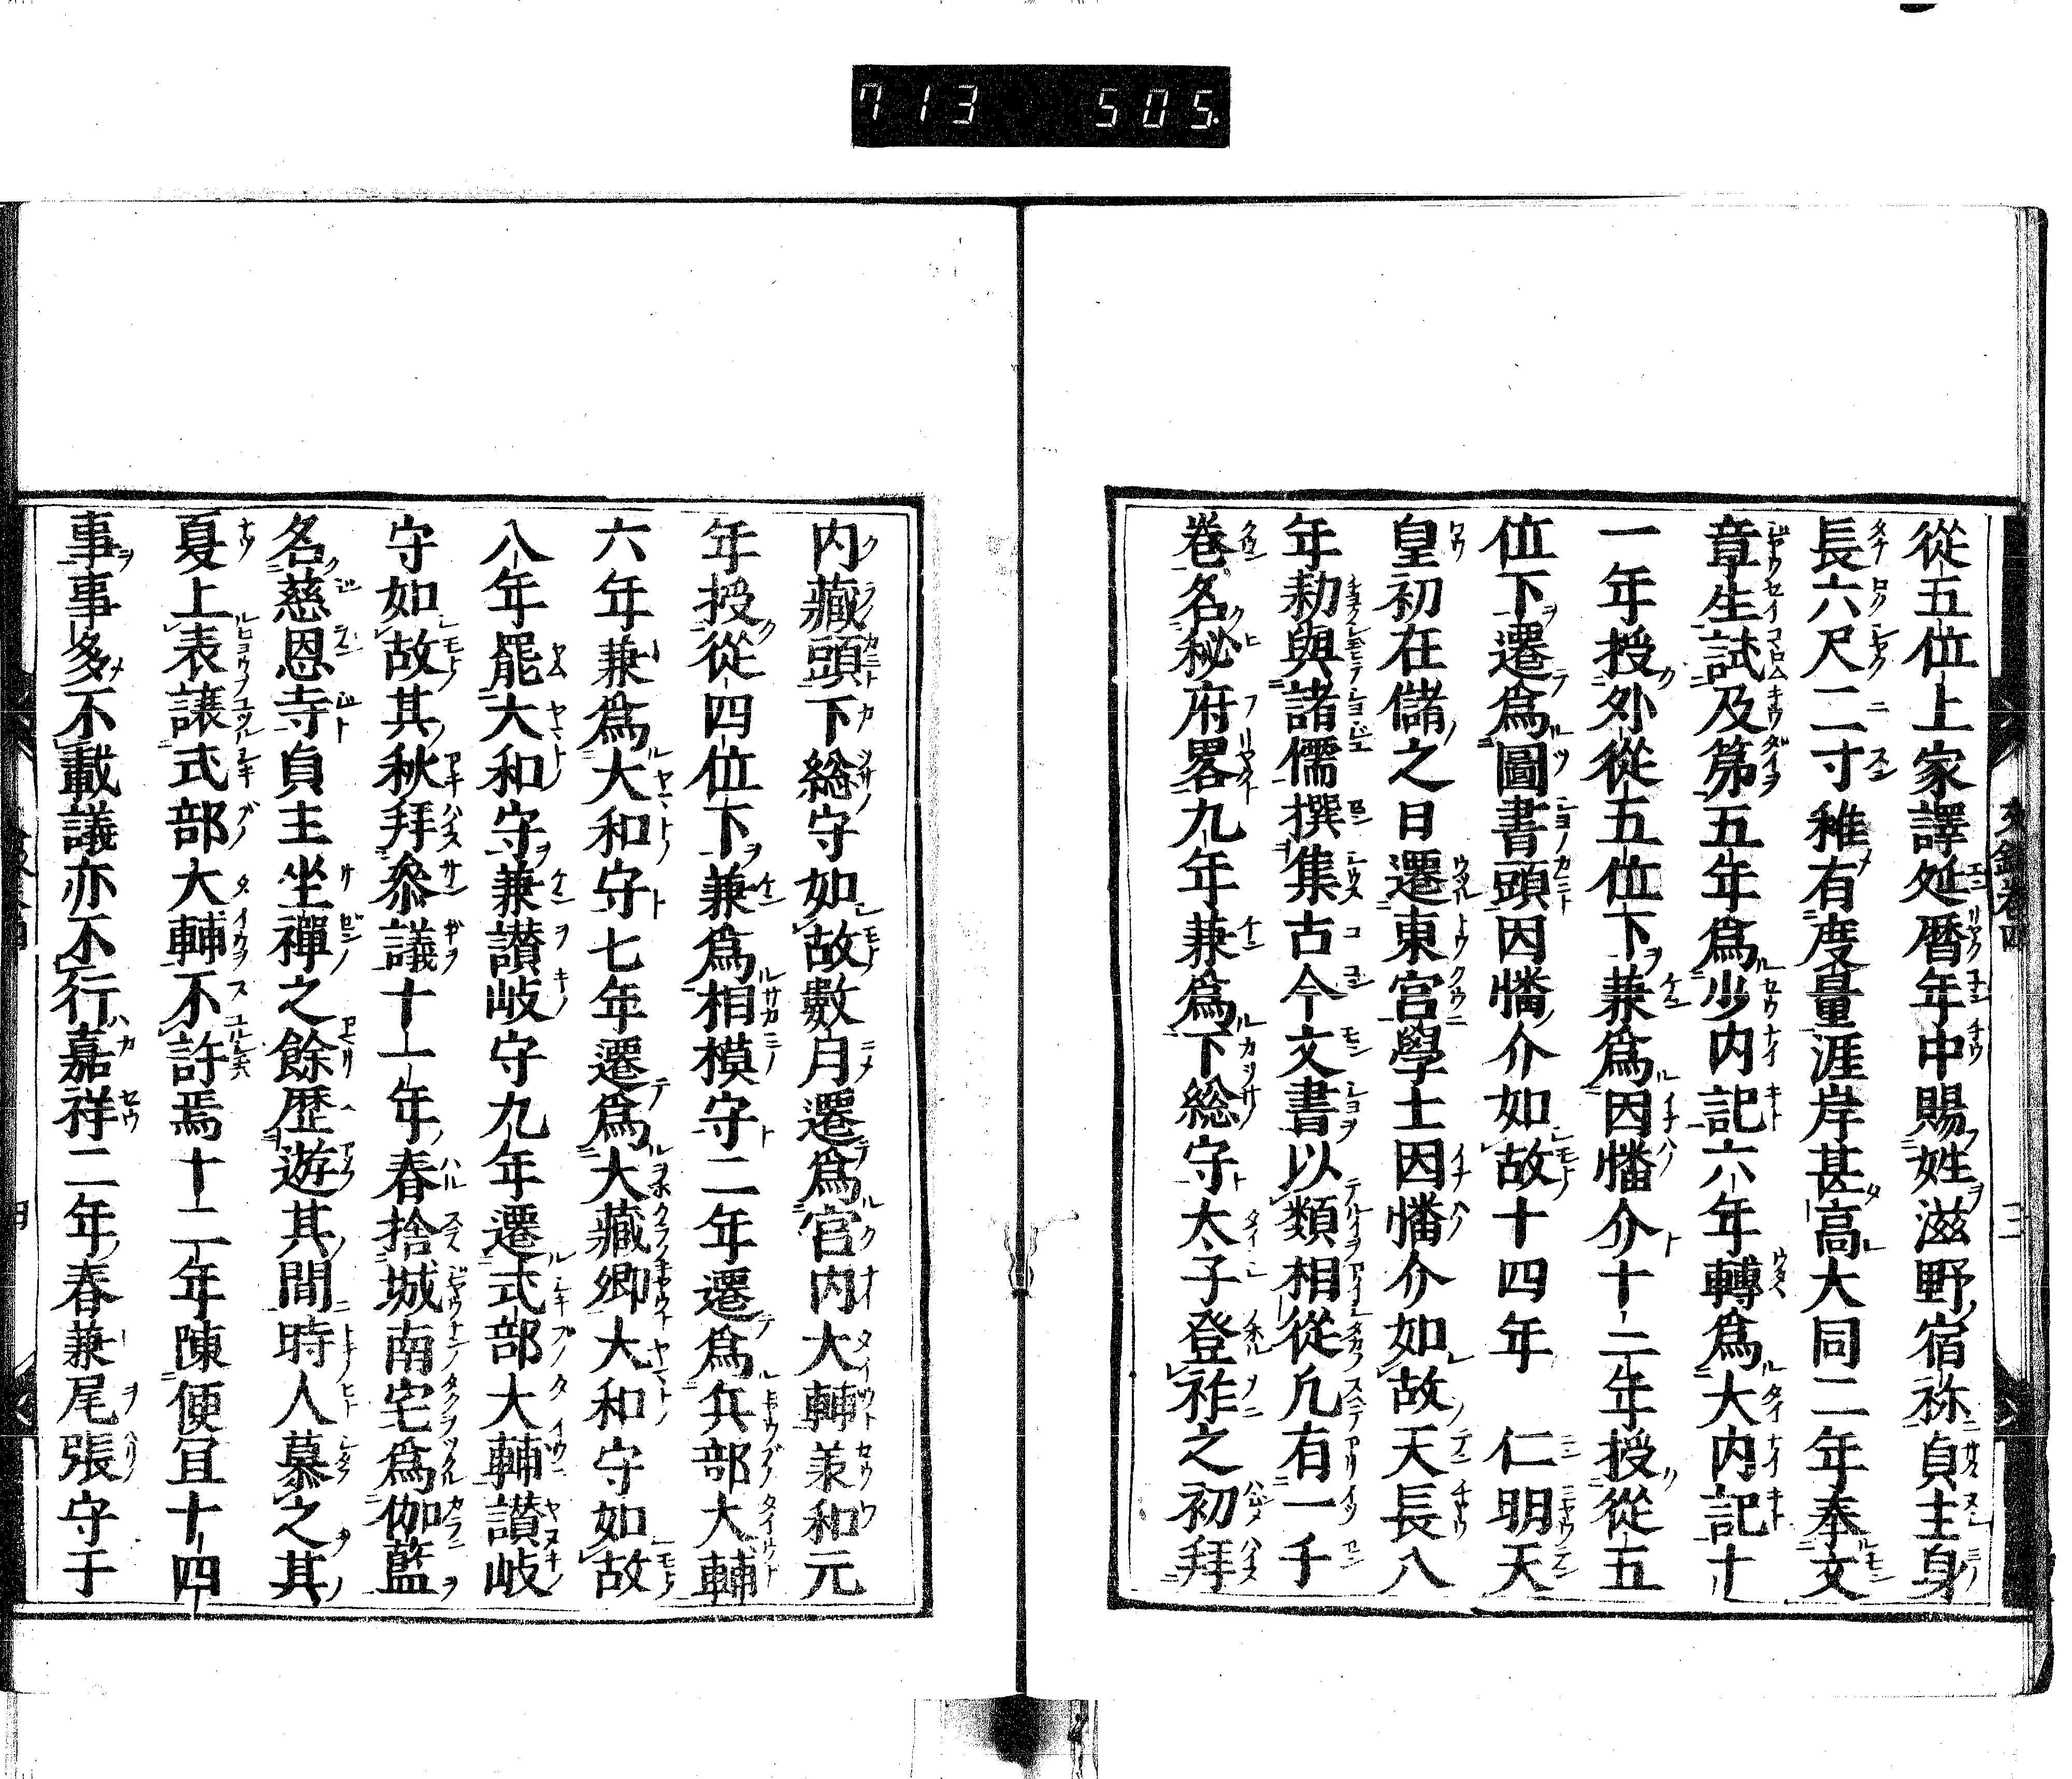 713 505.
從五位上家譯延暦年中賜姓滋野宿祢貞主身
長六尺二寸稚有度量涯岸甚高大同二年奉文
章生試及第五年爲少内記六年轉爲大内記十
一年授外從五位下兼爲因幡介十二年授從五
位下遷爲圖書頭因幡介如故十四年　仁明天
皇初在儲之日遷東宮學士因幡介如故天長八
年勅與諸儒撰集古今文書以類相從凡有一千
巻名秘府畧九年兼爲下総守太子登祚之初拜
内藏頭下総守如故數月遷爲宮内大輔兼和元
年授從四位下兼爲相模守二年遷爲兵部大輔
六年兼爲大和守七年遷爲大藏卿大和守如故
八年罷大和守兼讃岐守九年遷式部大輔讃岐
守如故其秋拜叅議十一年春捨城南宅爲伽藍
名慈恩寺貞主坐禪之餘歴遊其間時人慕之其
夏上表讓式部大輔不許焉十二年陳便宜十四
事事多不載議亦不行嘉祥二年春兼尾張守于